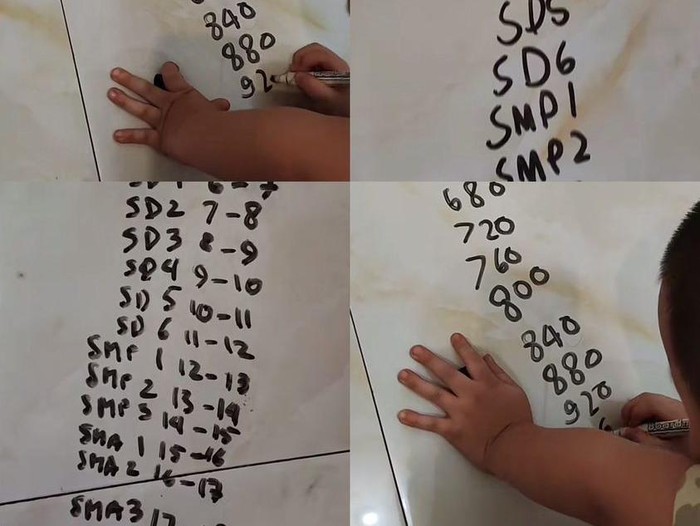 840
880
92
SD5
SD6
SMP1
SMP2
6-7
SD2 7-8
SD3 8-9
SD4 9-10
SD 5 10-11
SD 6 11-12
SMP 1 12-13
SMP 2 13-14
SMP 3 14-15
SMA 1 15-16
SMA 2 16-17
SMA3 17
680
720
760
800
840
880
920